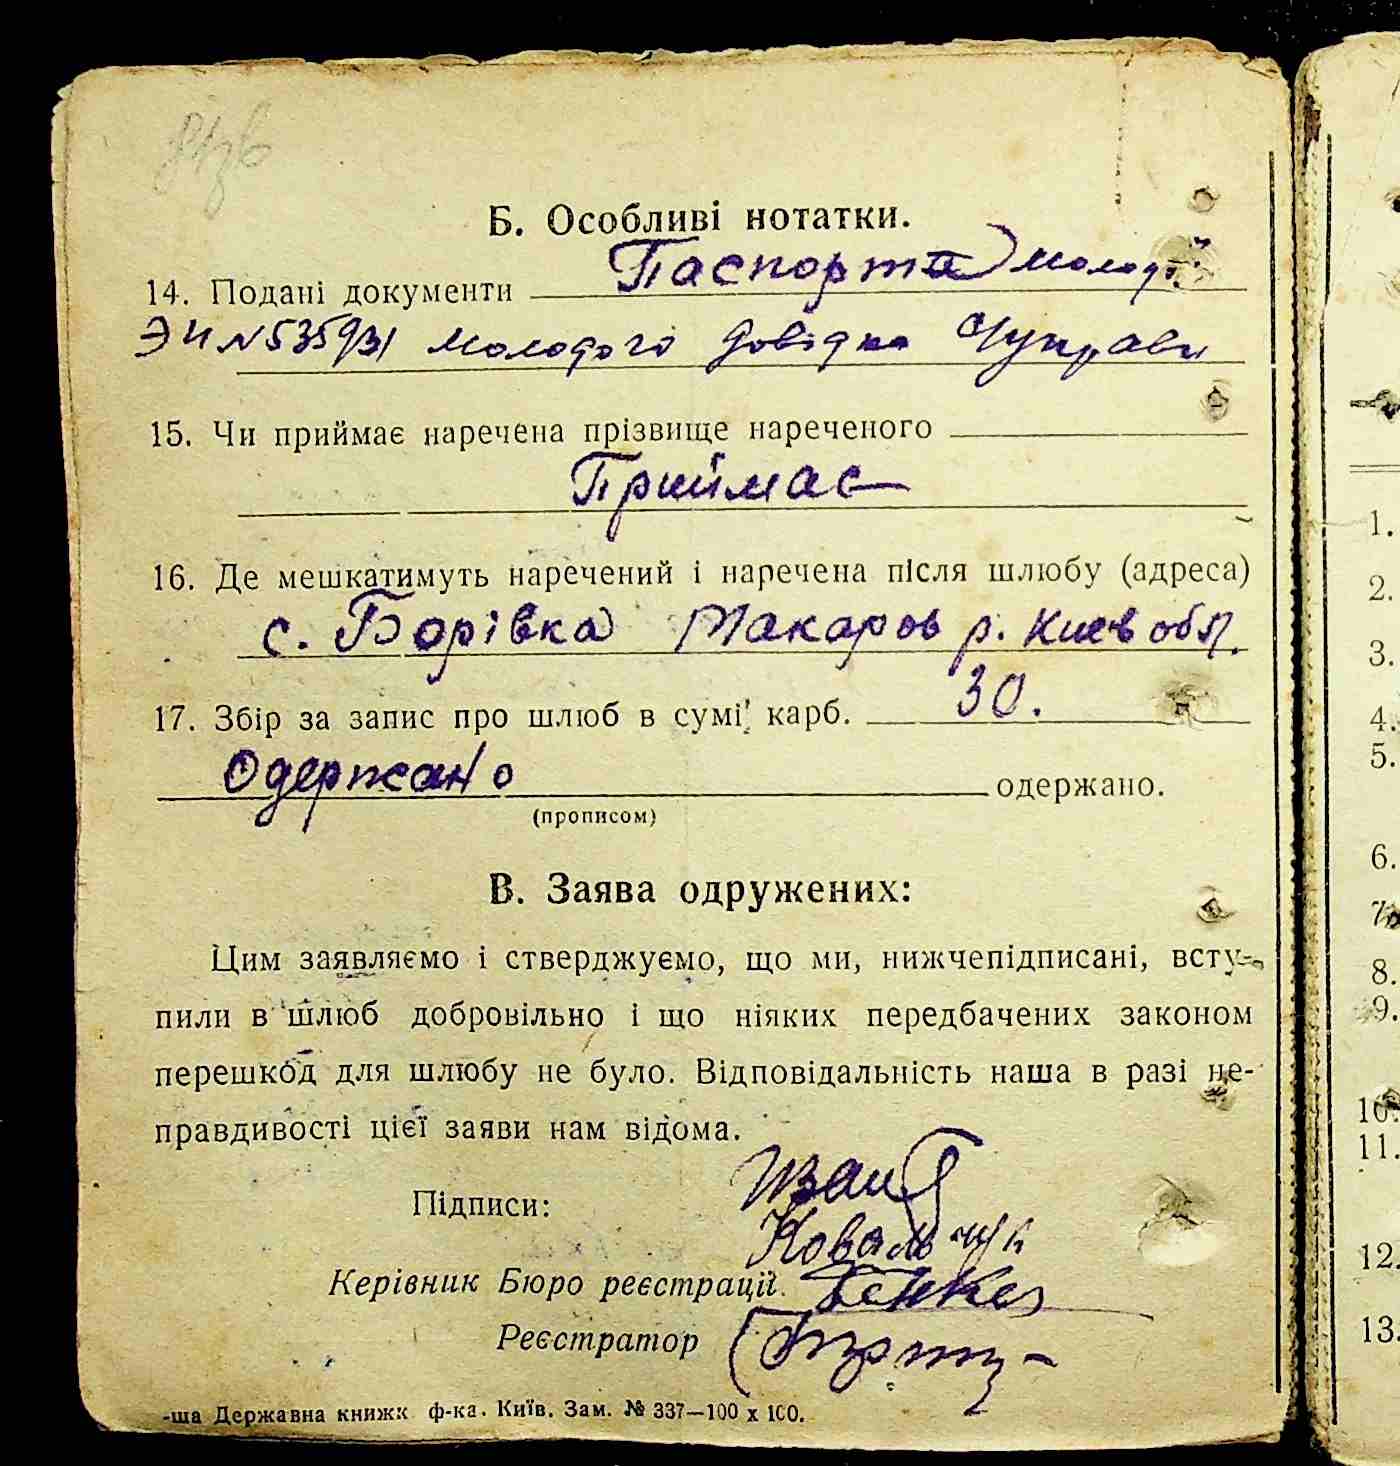 Б. Особливі нотатки.
14. Подані документи Паспорта молодої
ЭИ №535931 молодого довідка Суправи
15. Чи приймає наречена прізвище нареченого
Приймає
16. Де мешкатимуть наречений і наречена після шлюбу (адреса)
с. Борівка Макаров р. Киев обл.
17. Збір за запис про шлюб в сумі карб. 30.
Одержано одержано.
(прописом)
В. Заява одружених:
Цим заявляємо і стверджуємо, що ми, нижчепідписані, всту-
пили в шлюб добровільно і що ніяких передбачених законом
перешкод для шлюбу не було. Відповідальність наша в разі не-
правдивості цієї заяви нам відома.
Підписи:
Ковальчук
Керівник Бюро реєстрації
Реєстратор
-ша Державна книжк ф-ка. Київ. Зам. № 337—100 x 100.
1.
2.
3.
4.
5.
6.
7.
8.
9.
10.
11.
12.
13.